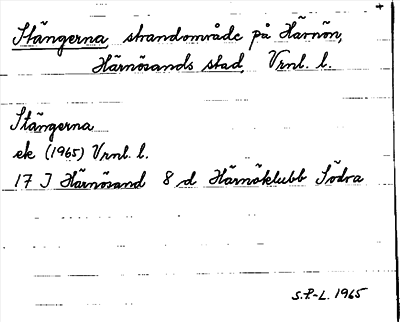 Stängerna, strandområde på Härnön,
Härnösands stad, Vrnl. l.
Stängerna
ek (1965) Vrnl. l.
17 J Härnösand 8 d Härnöklubb Södra
S.P-L. 1965